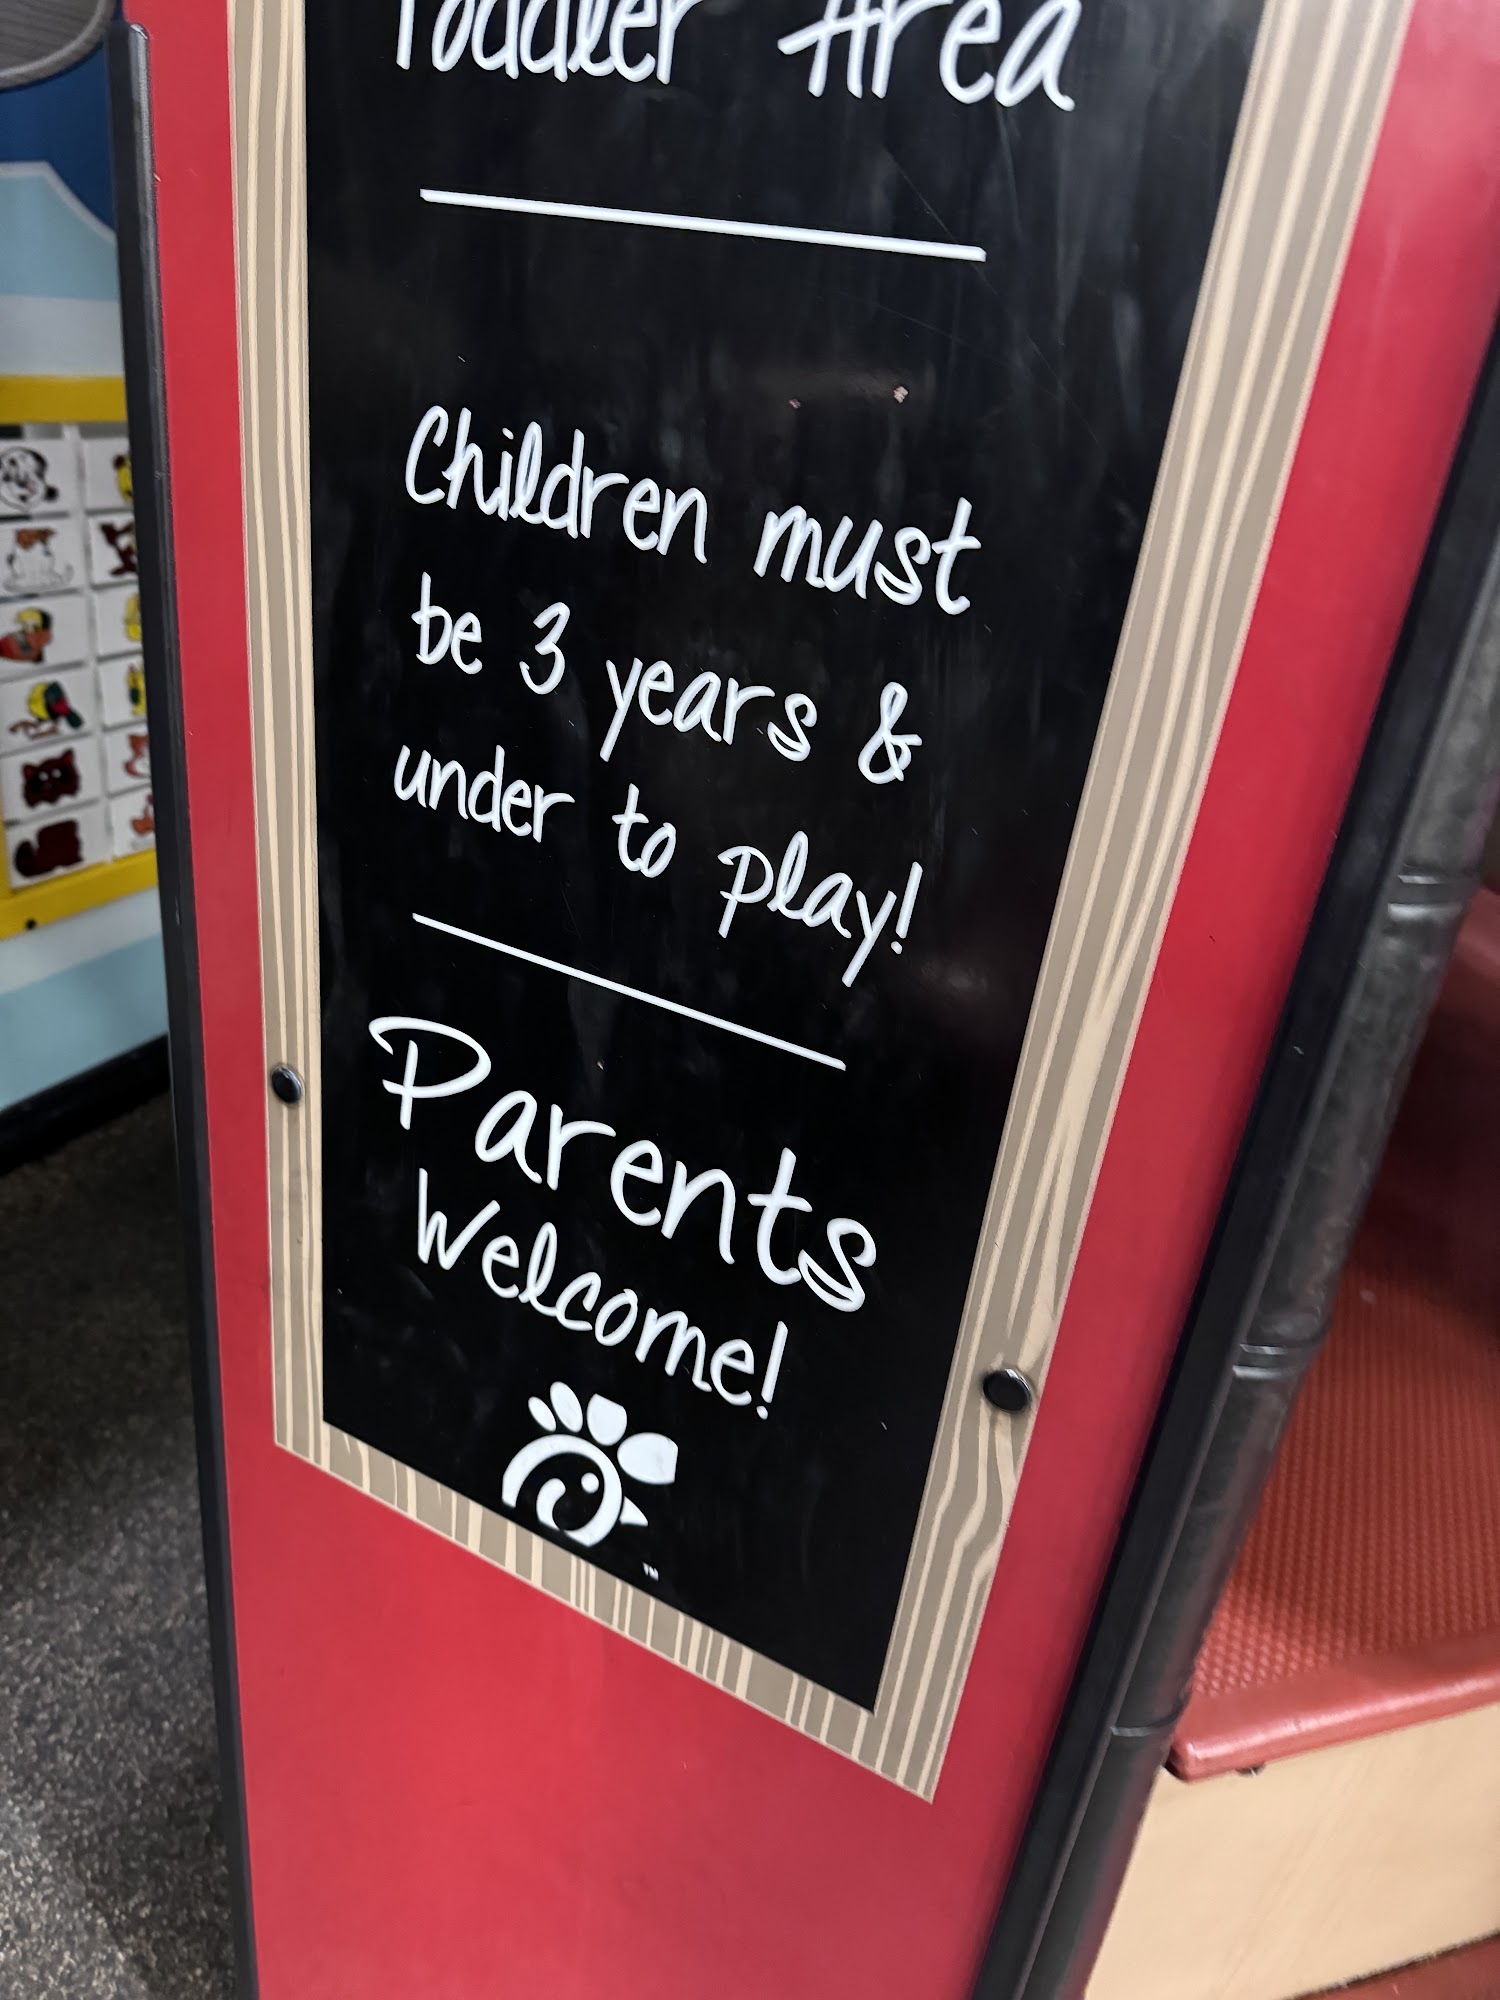 Toddler Area
Children must
be 3 years &
under to play!
Parents
Welcome!
TM